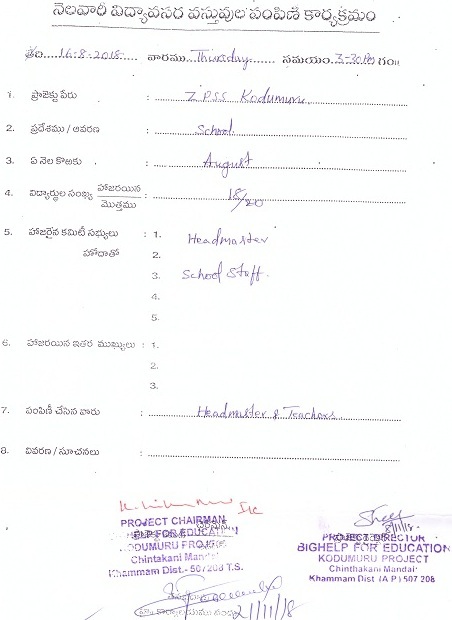 నెలవారీ విద్యావసర వస్తువుల పంపిణీ కార్యక్రమం
తేది....16-8-2018.. వారము...Thursday....... సమయం.3-30PM గం॥
1. ప్రాజెక్టు పేరు : ZPSS Kodumuru.
2. ప్రదేశము / ఆవరణ : School.
3. ఏ నెల కొఱకు : August
4. విద్యార్థుల సంఖ్య హాజరయిన / మొత్తము : 18/20
5. హాజరైన కమిటీ సభ్యులు : 1. Headmaster
హోదాతో 2.
3. School Staff.
4.
5.
6. హాజరయిన ఇతర ముఖ్యులు : 1.
2.
3.
7. పంపిణీ చేసిన వారు : Headmaster & Teachers.
8. వివరణ / సూచనలు :
PROJECT CHAIRMAN
HELP FOR EDUCATION
KODUMURU PROJECT
Chintakani Mandal
Khammam Dist.- 507208 T.S.
PROJECT DIRECTOR
BIGHELP FOR EDUCATION
KODUMURU PROJECT
Chinthakani Mandal
Khammam Dist (A P) 507 208
2/11/18